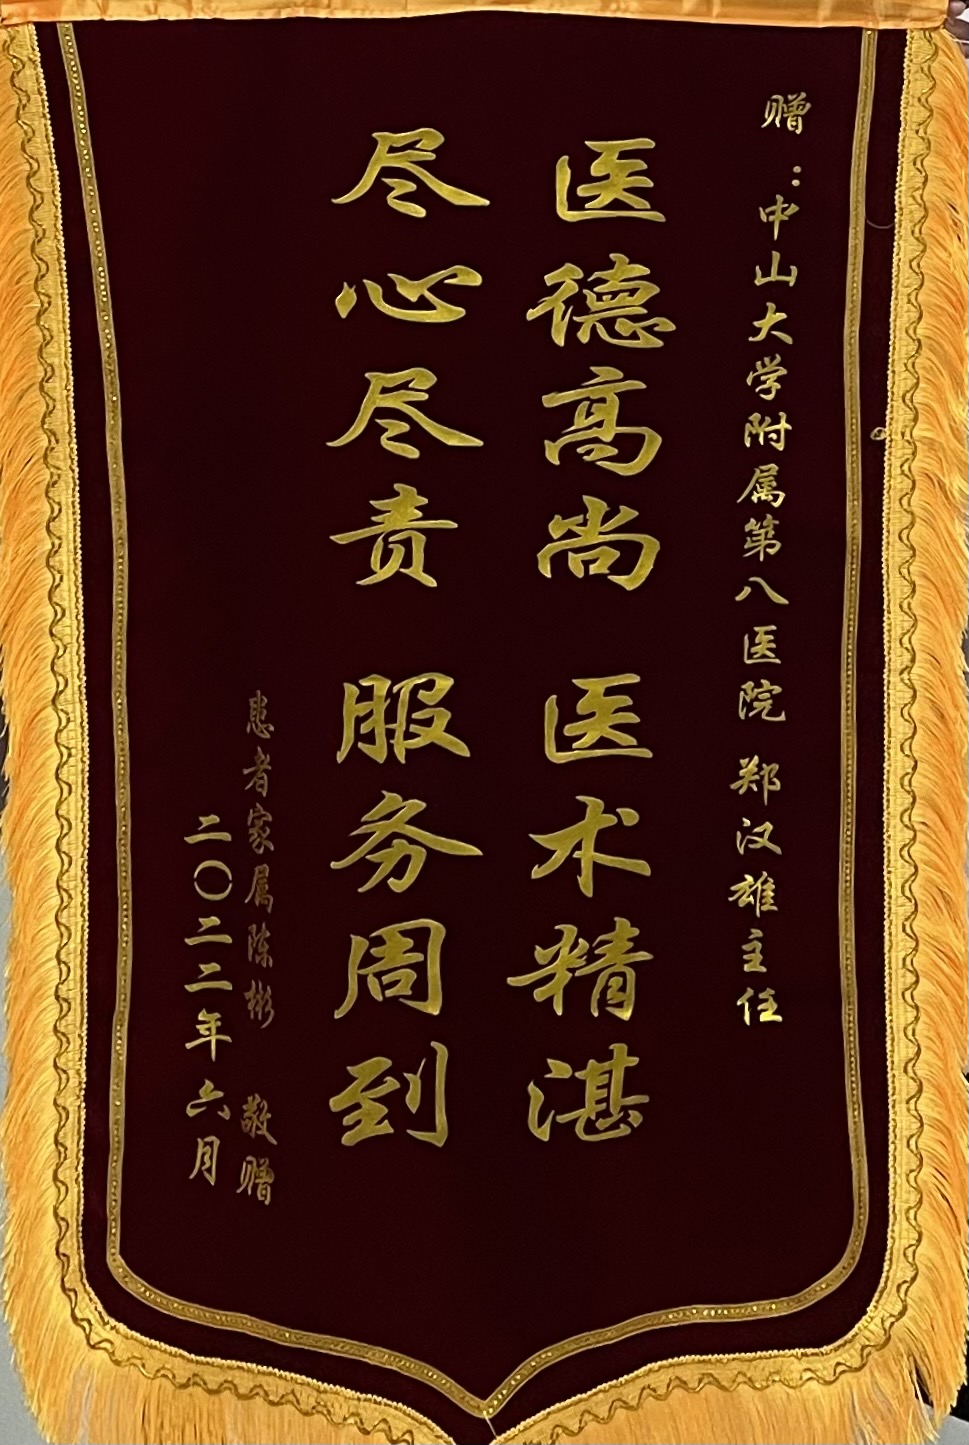 赠：中山大学附属第八医院 郑汉雄主任
医德高尚 医术精湛
尽心尽责 服务周到
患者家属陈彬 敬赠
二〇二二年六月